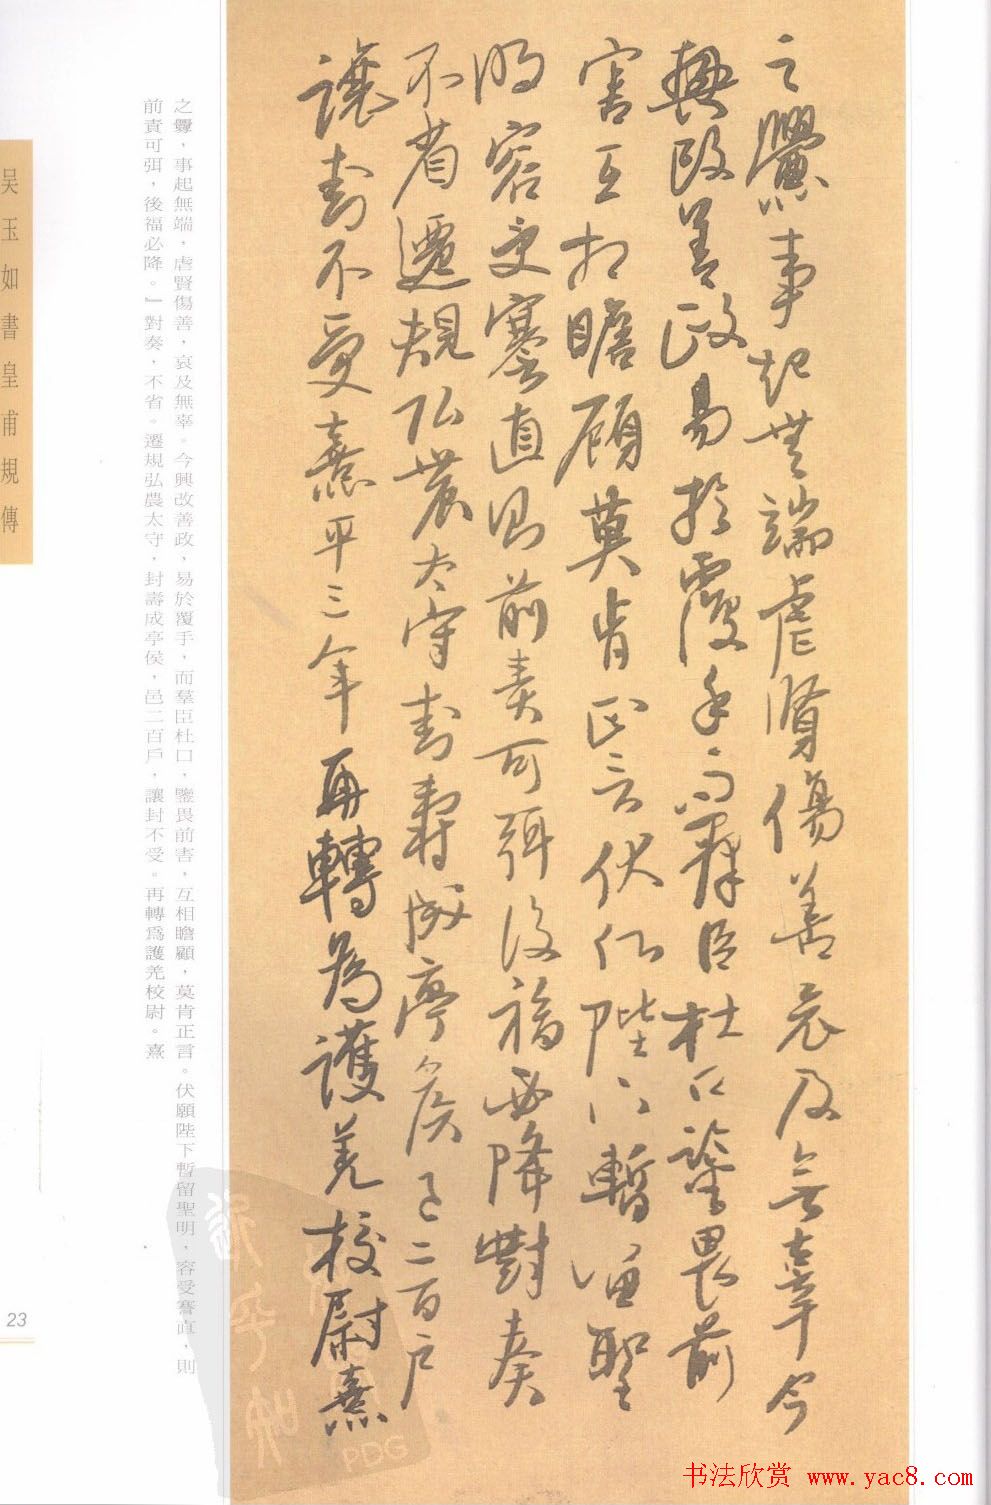 之釁事起無端虐賢傷善哀及無辜今
興改善政易於覆手而羣臣杜口鑒畏前
害互相瞻顧莫肯正言伏陛下暫留聖
明容受謇直則前責可弭後福必降對奏
不省遷規弘農太守封壽成亭侯邑二百戶
讓封不受熹平三年再轉為護羌校尉熹
之釁，事起無端，虐賢傷善，哀及無辜。今興改善政，易於覆手，而羣臣杜口，鑒畏前害，互相瞻顧，莫肯正言。伏願陛下暫留聖明，容受謇直，則
前責可弭，後福必降。』對奏，不省。遷規弘農太守，封壽成亭侯，邑二百戶，讓封不受。再轉爲護羌校尉。熹
吴玉如書皇甫規傳
23
PDG
书法欣赏 www.yac8.com